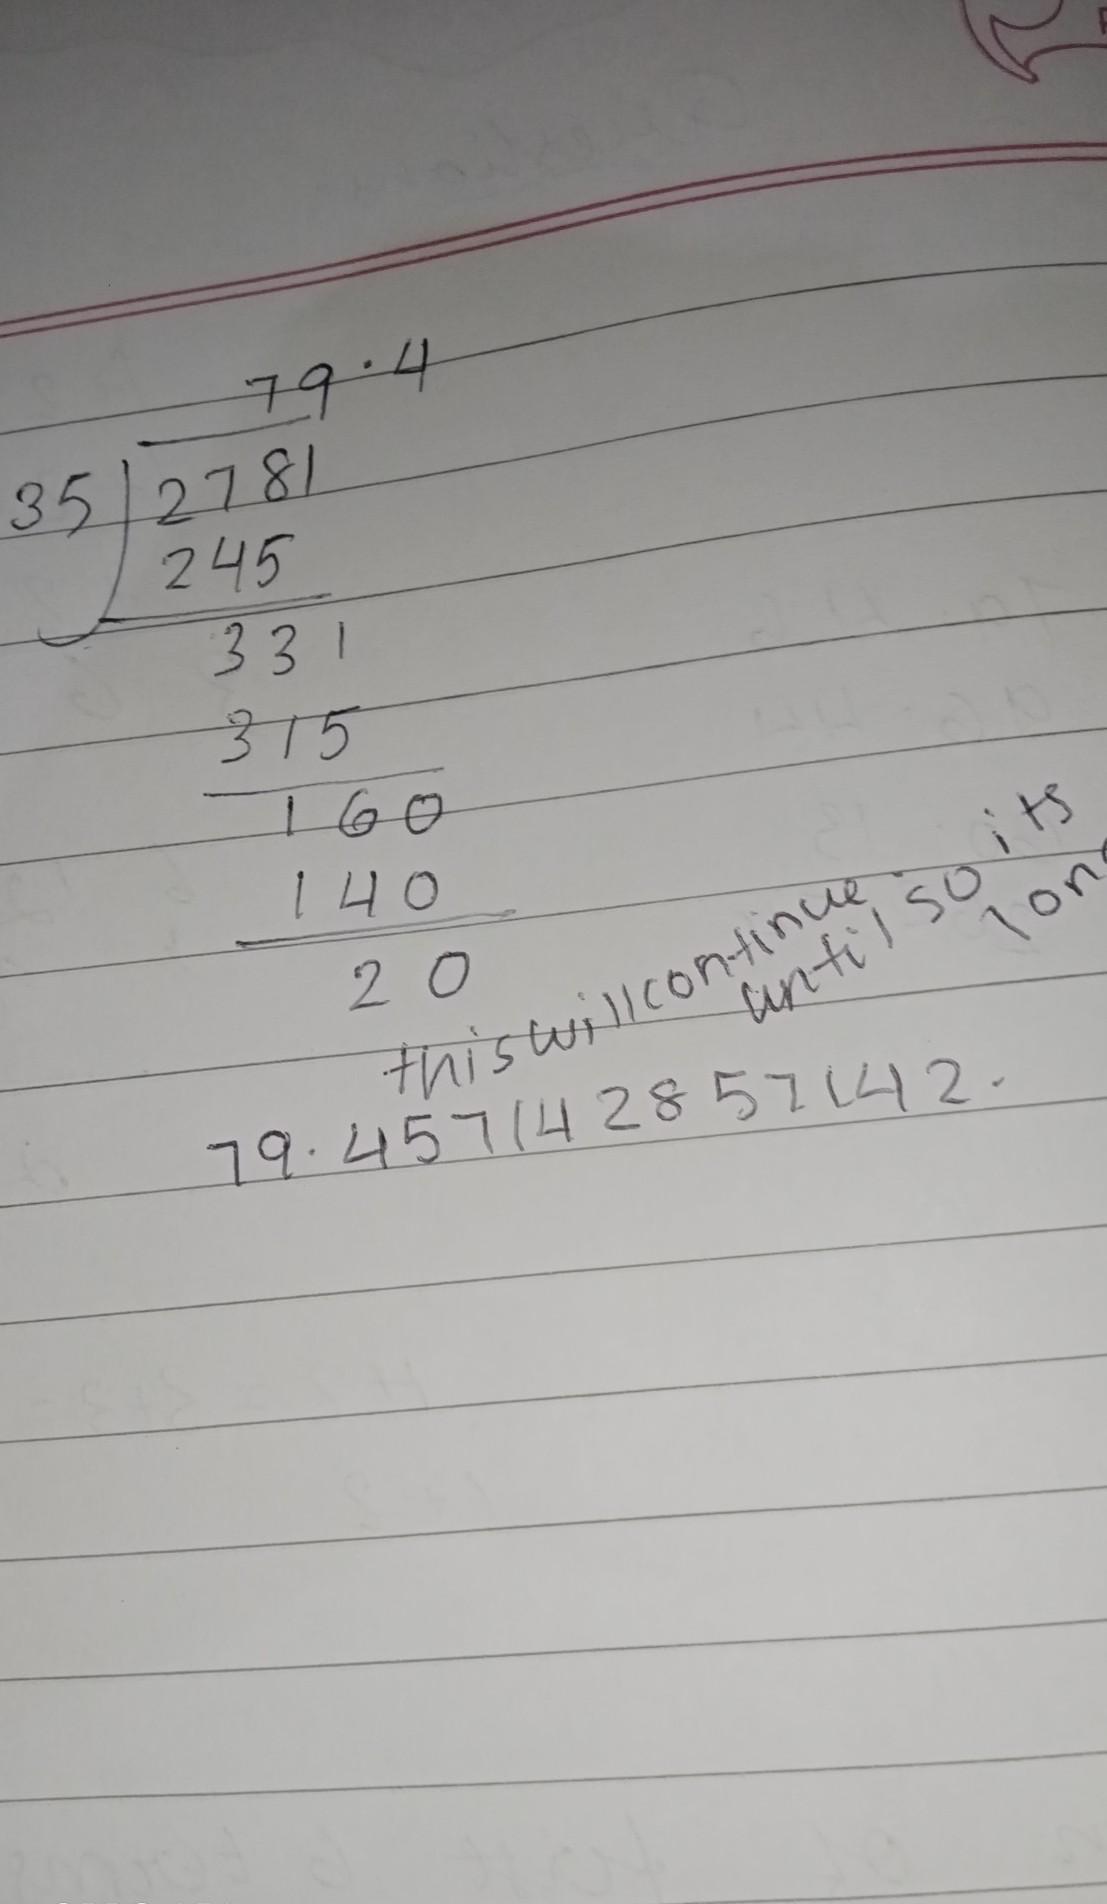 79.4
35 2781
245
331
315
160
140
20
this will continue so its
until long
79.457142857142.